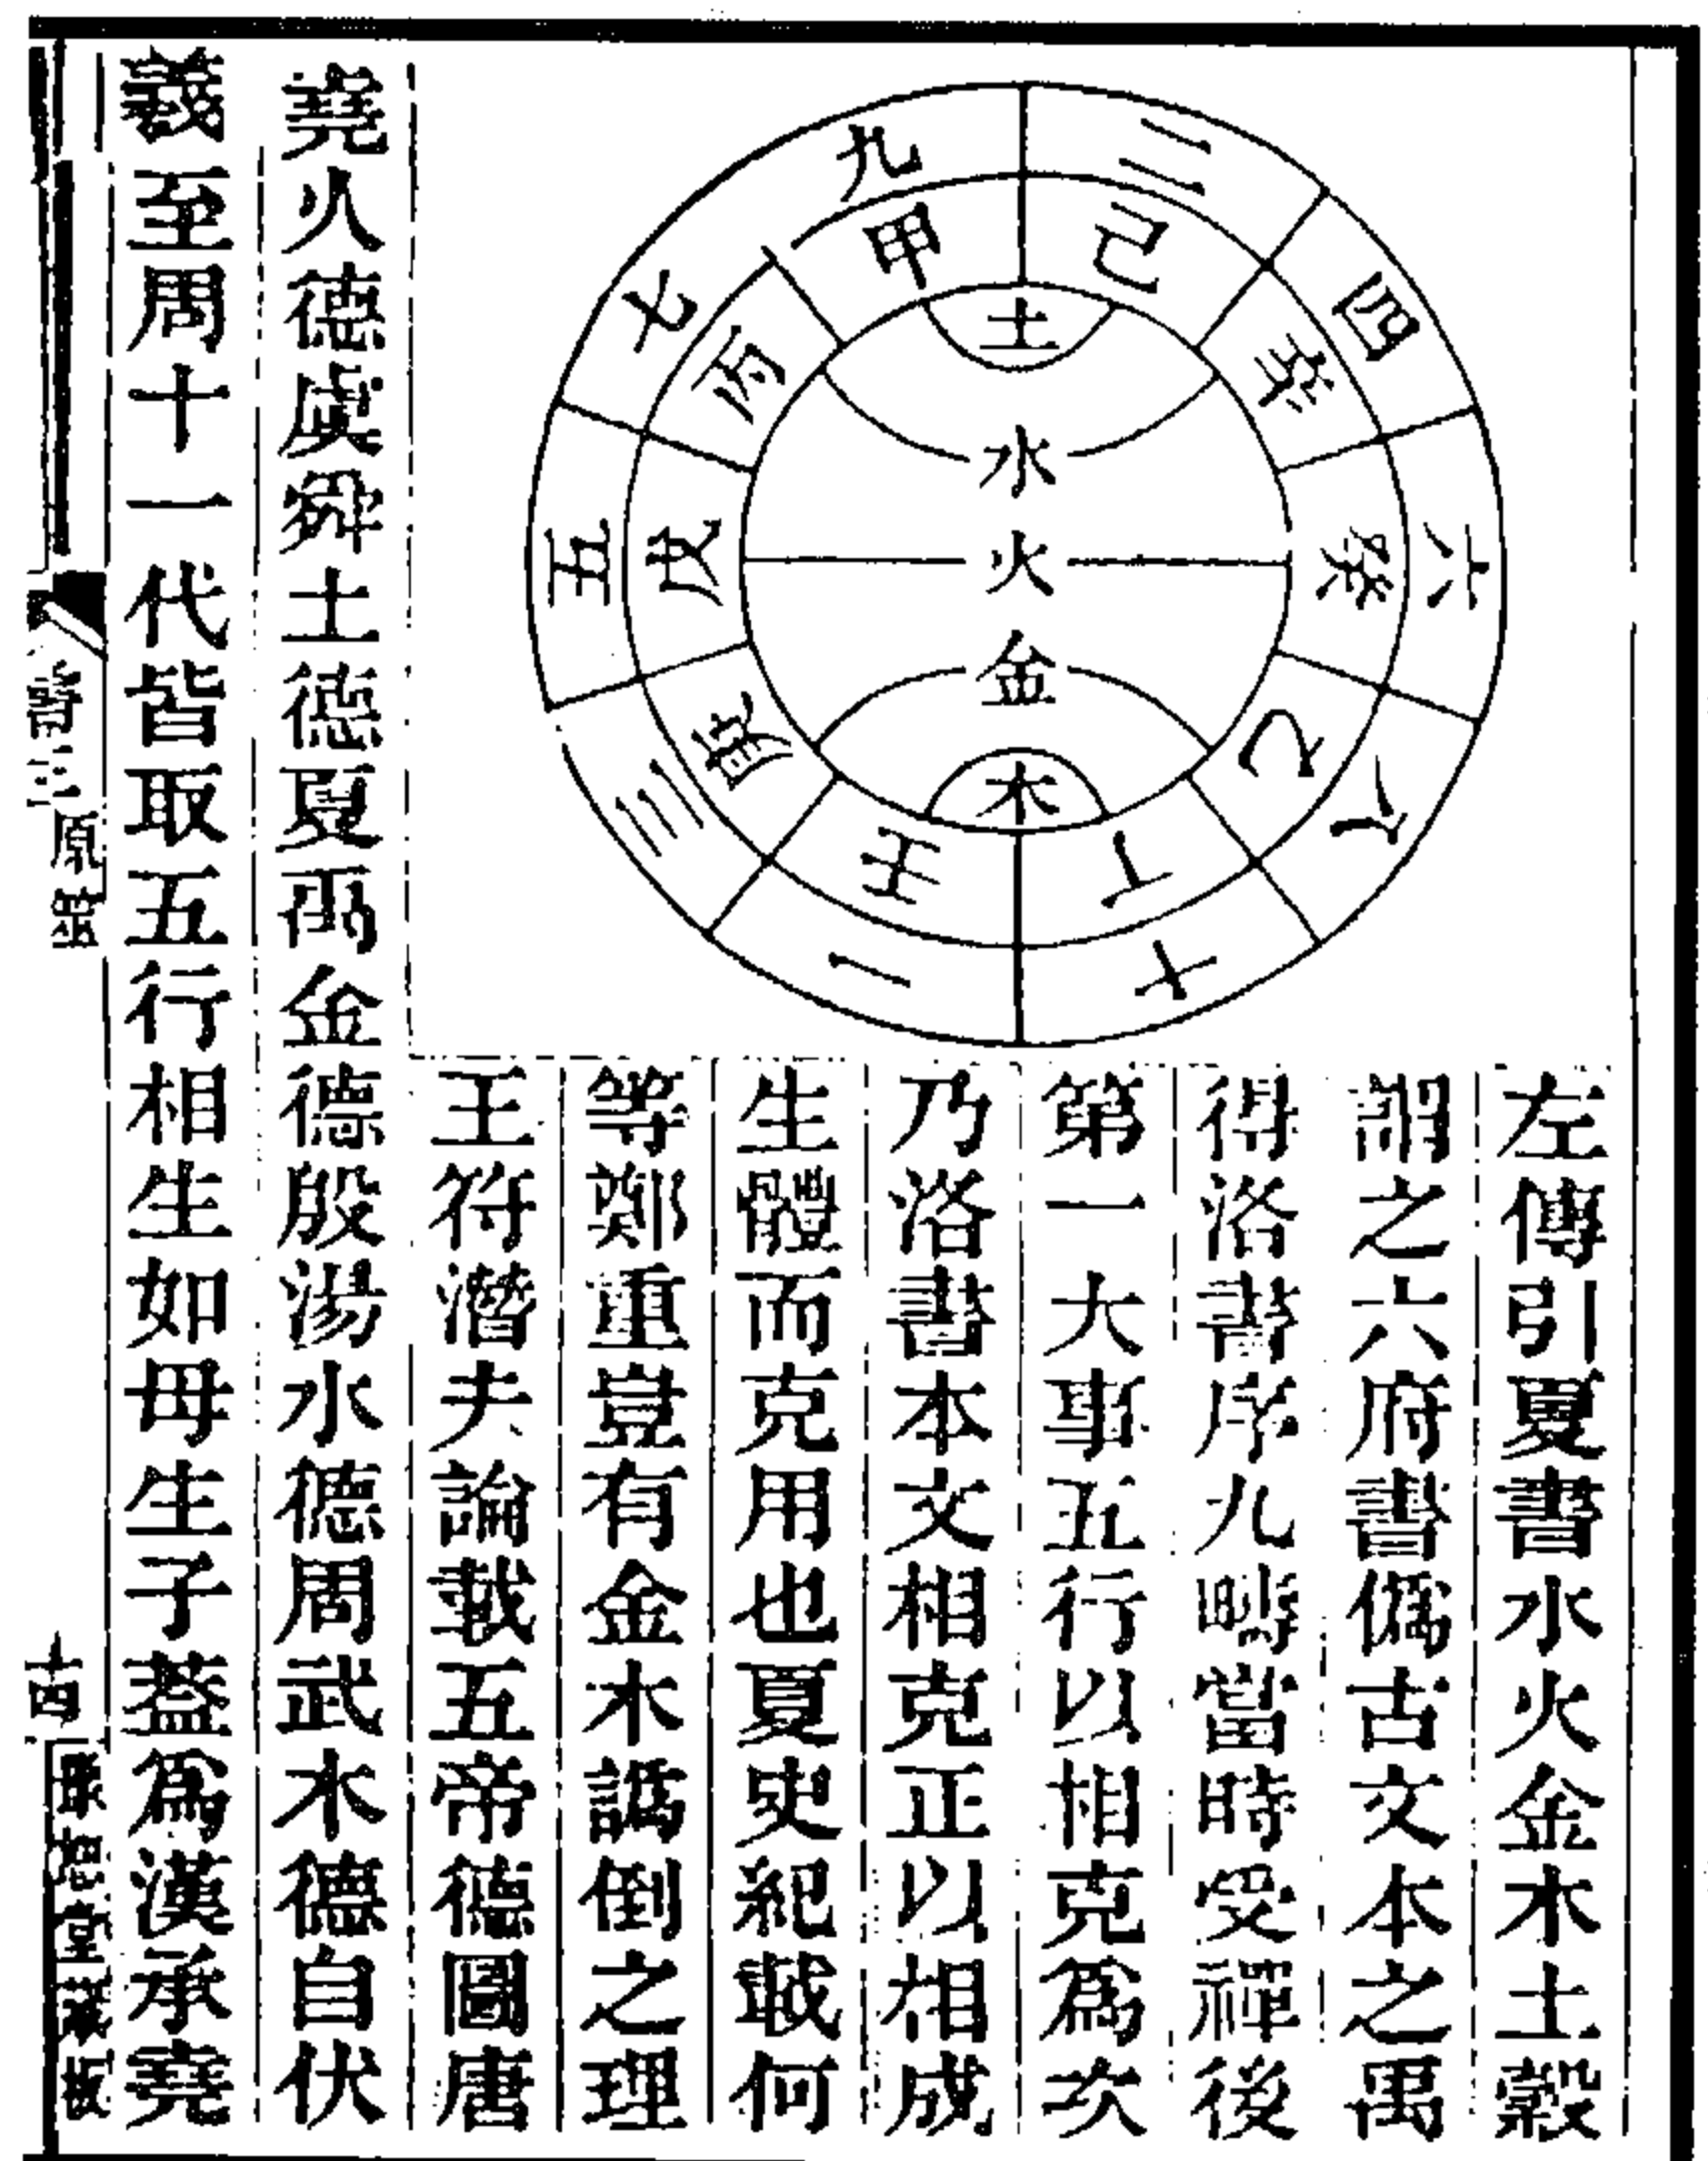 二
四
六
八
十
一
三
五
七
九
己
辛
癸
乙
丁
壬
庚
戊
丙
甲
土
水
火
金
木
左傳引夏書水火金木土穀
謂之六府書僞古文本之禹
得洛書序九疇當時受禪後
第一大事五行以相克爲次
乃洛書本文相克正以相成
生體而克用也夏史紀載何
等鄭重豈有金木譌倒之理
王符潛夫論載五帝德圖唐
堯火德虞舜土德夏禹金德殷湯水德周武木德自伏
羲至周十一代皆取五行相生如母生子葢爲漢承堯
原鑒
十四
堂藏板